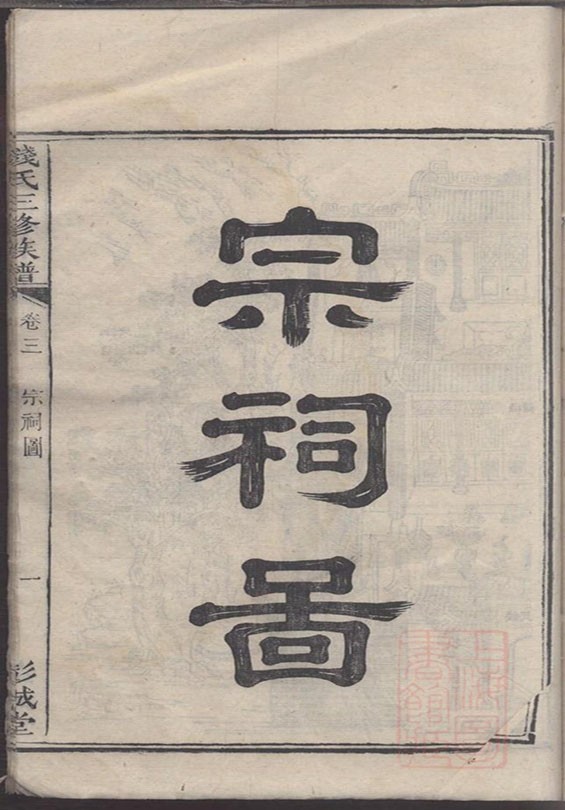 宗祠啚
錢氏三修族譜
卷三 宗祠圖
一
彭城堂